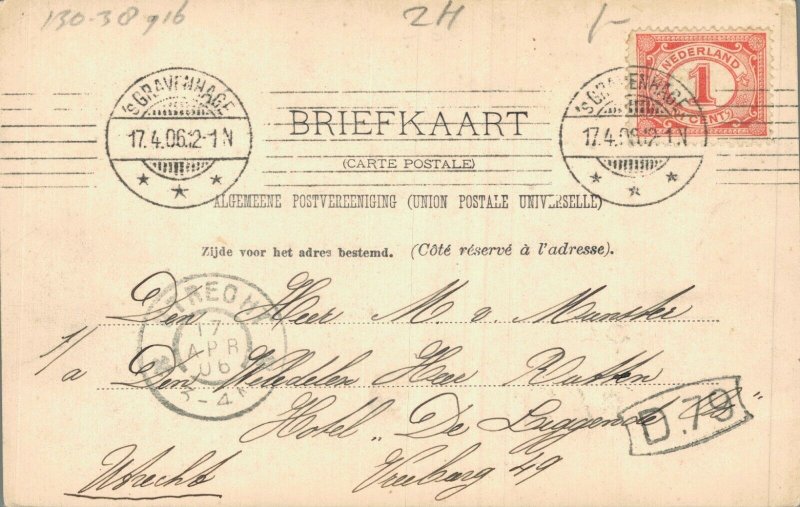 130-38916 2H 1-
NEDERLAND
1
(CENT)
'SGRAVENHAGE
17.4.06.12-1.N
'SGRAVENHAGE
17.4.06.12-1.N
BRIEFKAART
(CARTE POSTALE)
ALGEMEENE POSTVEREENIGING (UNION POSTALE UNIVERSELLE)
Zijde voor het adres bestemd. (Côté réservé à l'adresse).
UTRECHT
17
APR
06
3-4N
Den Heer M. v. Munster
1/a Den Weledelen Heer Rutten
Hotel „De Liggende Os"
D.79
Utrecht Vreeburg 49